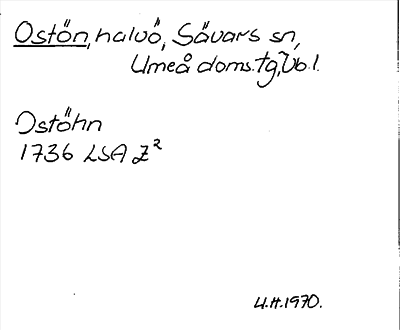 Ostön, halvö, Sävars sn,
Umeå doms.tg, Vb.l.
Ostöhn
1736 LSA Z²
U.H. 1970.